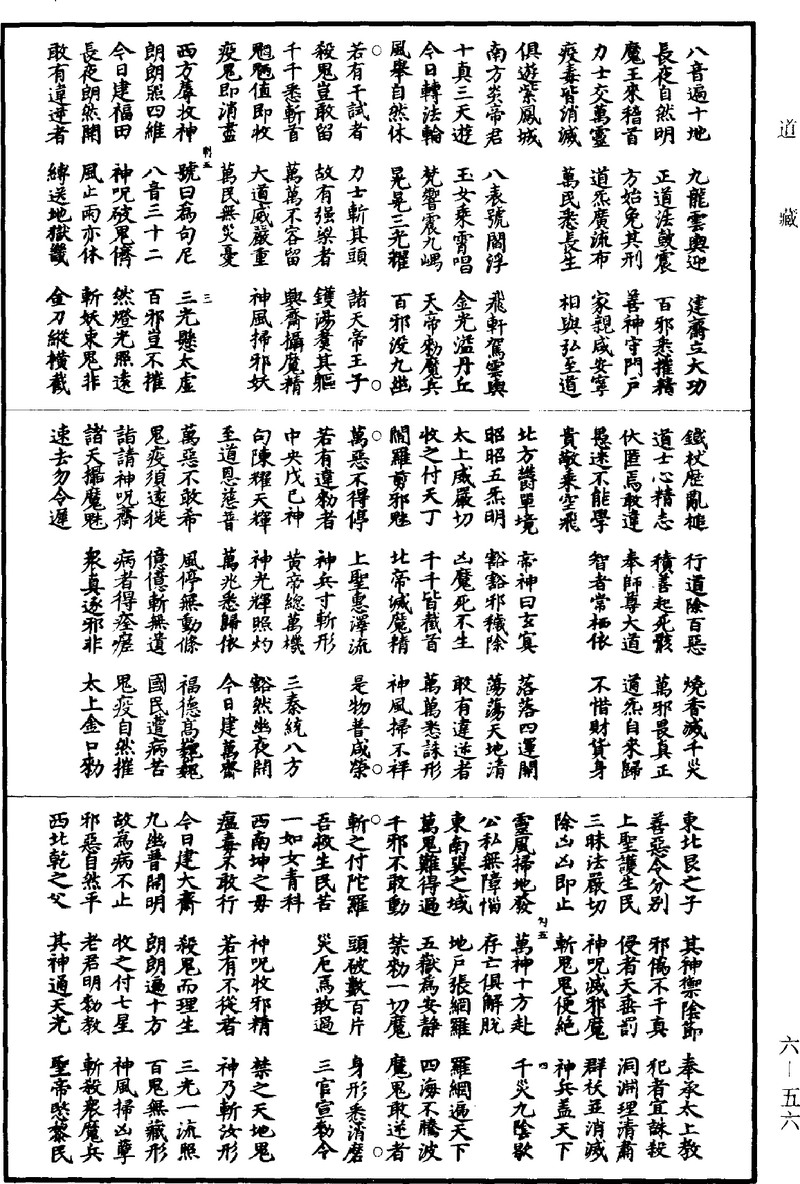 道藏
八音遍十地　九龍雲輿迎　建齋立大功
長夜自然明　正道法鼓震　百邪悉摧精
魔王來稽首　方始免其刑　善神守門戶
力士交萬靈　道炁廣流布　家親咸安寧
疫毒皆消滅　萬民悉長生　相與弘至道
俱遊紫鳳城
南方炎帝君　八表號閻浮　飛軒駕雲輿
十真三天遊　玉女乘霄唱　金光溢丹丘
今日轉法輪　梵響震九嵎　天帝勑魔兵
風舉自然休　晃晃三光耀　百邪没九幽
若有干試者　力士斬其頭　諸天帝王子
殺鬼豈敢留　故有强梁者　鑊湯煑其軀
千千悉斬首　萬萬不容留　輿齋攝魔精
魍魎值即收　大道威嚴重　神風掃邪妖
疫鬼即消盡　萬民無災憂
三
西方蓐收神　號曰為句尼　三光懸太虛
朗朗照四維　八音三十二　百邪豈不摧
今日建福田　神呪破鬼儔　然燈光照遠
長夜朗然開　風止雨亦休　斬妖束鬼非
敢有違逆者　縛送地獄巇　金刀縱橫截
鐵杖歷亂搥　行道除百惡　燒香滅千災
道士心精志　積善起死骸　萬邪畏真正
伏匿焉敢違　奉師尊大道　道炁自來歸
愚迷不能學　智者常栖依　不惜財貨身
貴敵乘空飛
北方欝單境　帝神曰玄冥　落落四運開
昭昭五炁明　豁豁邪穢除　蕩蕩天地清
太上威嚴切　凶魔死不生　敢有違逆者
收之付天丁　千千皆截首　萬萬悉誅形
閻羅剪邪魅　北帝滅魔精　神風掃不祥
萬惡不得停　上聖惠澤流　是物普咸榮
若有違勑者　神兵寸斬形
中央戊巳神　黃帝總萬機　三秦統八方
句陳耀天輝　神光輝照灼　豁然幽夜開
至道恩慈普　萬兆悉歸依　今日建萬齋
萬惡不敢希　風停無動條　福德高巍巍
鬼疫須遠從　億億斬無遺　國民遭病苦
詣請神呪齋　病者得痊瘥　鬼疫自然摧
諸天攝魔魅　衆真逐邪非　太上金口勑
速去勿令遲
東北艮之子　其神禦陰節　奉承太上教
善惡令分別　邪僞不干真　犯者宜誅殺
上聖護生民　侵者天垂罰　洞淵理清肅
三昧法嚴切　神呪滅邪魔　群袄並消滅
除凶凶即止　斬鬼鬼便絕　神兵蓋天下
靈風掃地發　萬神十方赴　千災九陰歇
四
公私無障惱　存亡俱解脫
東南巽之域　地戶張網羅　羅網遍天下
萬鬼難得過　五嶽為安靜　四海不騰波
千邪不敢動　禁勑一切魔　魔鬼敢逆者
斬之付陀羅　頭破數百片　身形悉消磨
吾救生民苦　災厄焉敢過　三官宣勑令
一如女青科
西南坤之毋　神呪收邪精　禁之天地鬼
瘟毒不敢行　若有不從者　神乃斬汝形
今日建大齋　殺鬼而理生　三光一流照
九幽普開明　朗朗遍十方　百鬼無藏形
故為病不止　收之付七星　神風掃凶孽
邪惡自然平　老君明勑教　斬殺衆魔兵
西北乾之父　其神通天光　聖帝愍黎民
六—五六